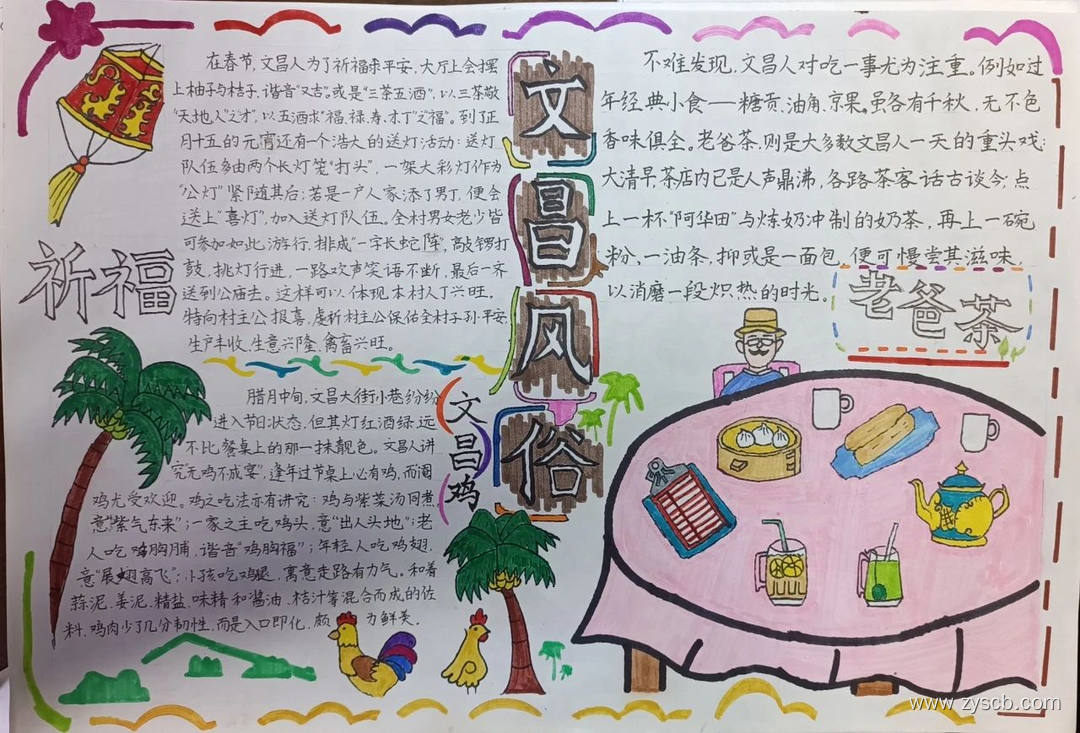 文昌风俗
祈福
在春节,文昌人为了祈福求平安,大厅上会摆
上柚子与桔子,谐音“又吉”。或是“三茶五酒”,以三茶敬
“天地人”之才”,以五酒求“福、禄、寿、
到了正
月十五的元宵还有一个浩大的送灯活动:送灯
队伍多由两个长灯笼“打头”,一架大彩灯作为
“公灯”紧随其后;若是一户人家添了男丁,便会
送上“喜灯”,加入送灯队伍。全村男女老少皆
可参加如此游行,排成“一字长蛇阵”,敲锣打
鼓,挑灯行进,一路欢声笑语不断,最后一齐
送到公庙去。这样可以体现本村人丁兴旺。
特向村主公报喜,虔祈村主公保佑全村子孙平安,
生产丰收,生意兴隆,禽畜兴旺。
文昌鸡
腊月中旬,文昌大街小巷纷纷
进入节日状态,但其灯红酒绿,远
不比餐桌上的那一抹靓色。文昌人讲
究“无鸡不成宴”,逢年过节桌上必有鸡,而阉
鸡尤受欢迎。鸡之吃法亦有讲究:鸡与紫菜汤同煮,
意“紫气东来”;一家之主吃鸡头,意“出人头地”;老
人吃鸡胸脯,谐音“鸡胸福”;年轻人吃鸡翅,
意“展翅高飞”;小孩吃鸡腿,寓意走路有力气。和着
蒜泥、姜泥、精盐、味精和酱油、桔汁等混合而成的佐
料,鸡肉少了几分韧性,而是入口即化,颇 为鲜美。
不难发现,文昌人对吃一事尤为注重。例如过
年经典小食——糖贡、油角、京果。虽各有千秋,无不色
香味俱全。老爸茶,则是大多数文昌人一天的重头戏:
大清早,茶店内已是人声鼎沸,各路茶客话古谈今,点
上一杯“阿华田”与炼奶冲制的奶茶,再上一碗
粉,一油条,抑或是一面包,便可慢尝其滋味,
以消磨一段炽热的时光。
老爸茶
www.zyscb.com